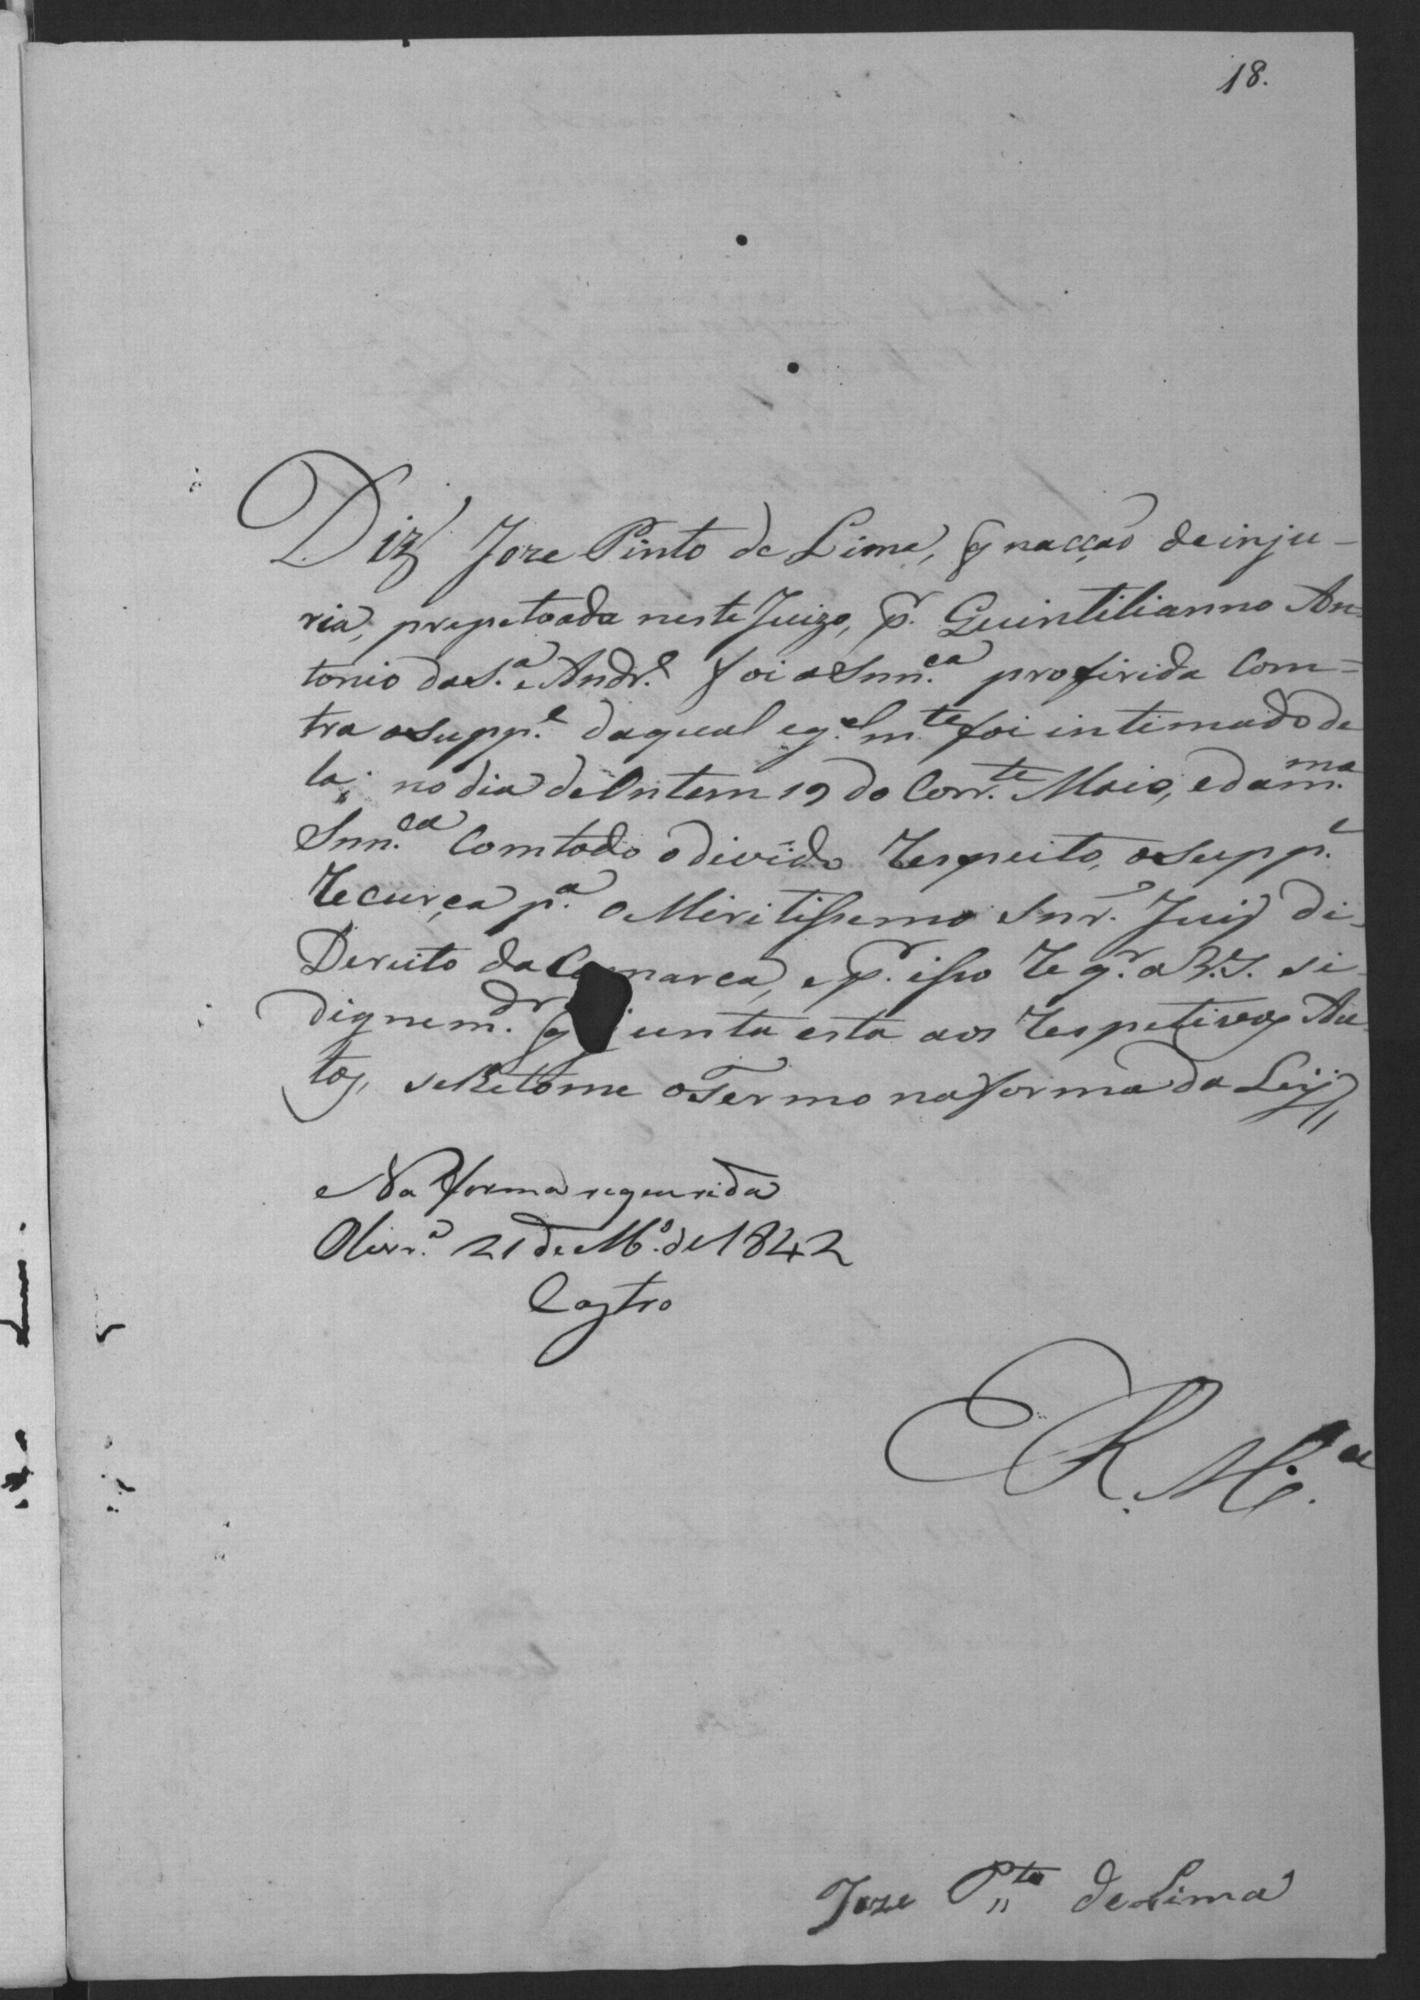 18.
Diz Joze Pinto de Lima, q̃ na acção de inju-
ria, prepetoada neste Juizo, p.r Quintilianno An=
tonio da S.a e Andr.e foi a Snn.ca proferida Com=
tra o Supp.e da qual eg.el m.te foi intimado de
la, no dia de Ontem 19 do Corr.te Maio, e da m.ma
Snn.ca Com todo o divido respeito, o Supp.e
recurça p.a o Miritissemo Snr. Juiz di-
Dereito da Comarca, e p.r isso req.r a V.S. si-
dignem.dr q̃ junta esta aos respetivos Au-
tos, se lhe tome o Termo na forma da Ley
Na forma requerida
Olivr.a 21 de M.o de 1842
Castro
E R M.ca
Joze P.to de Lima